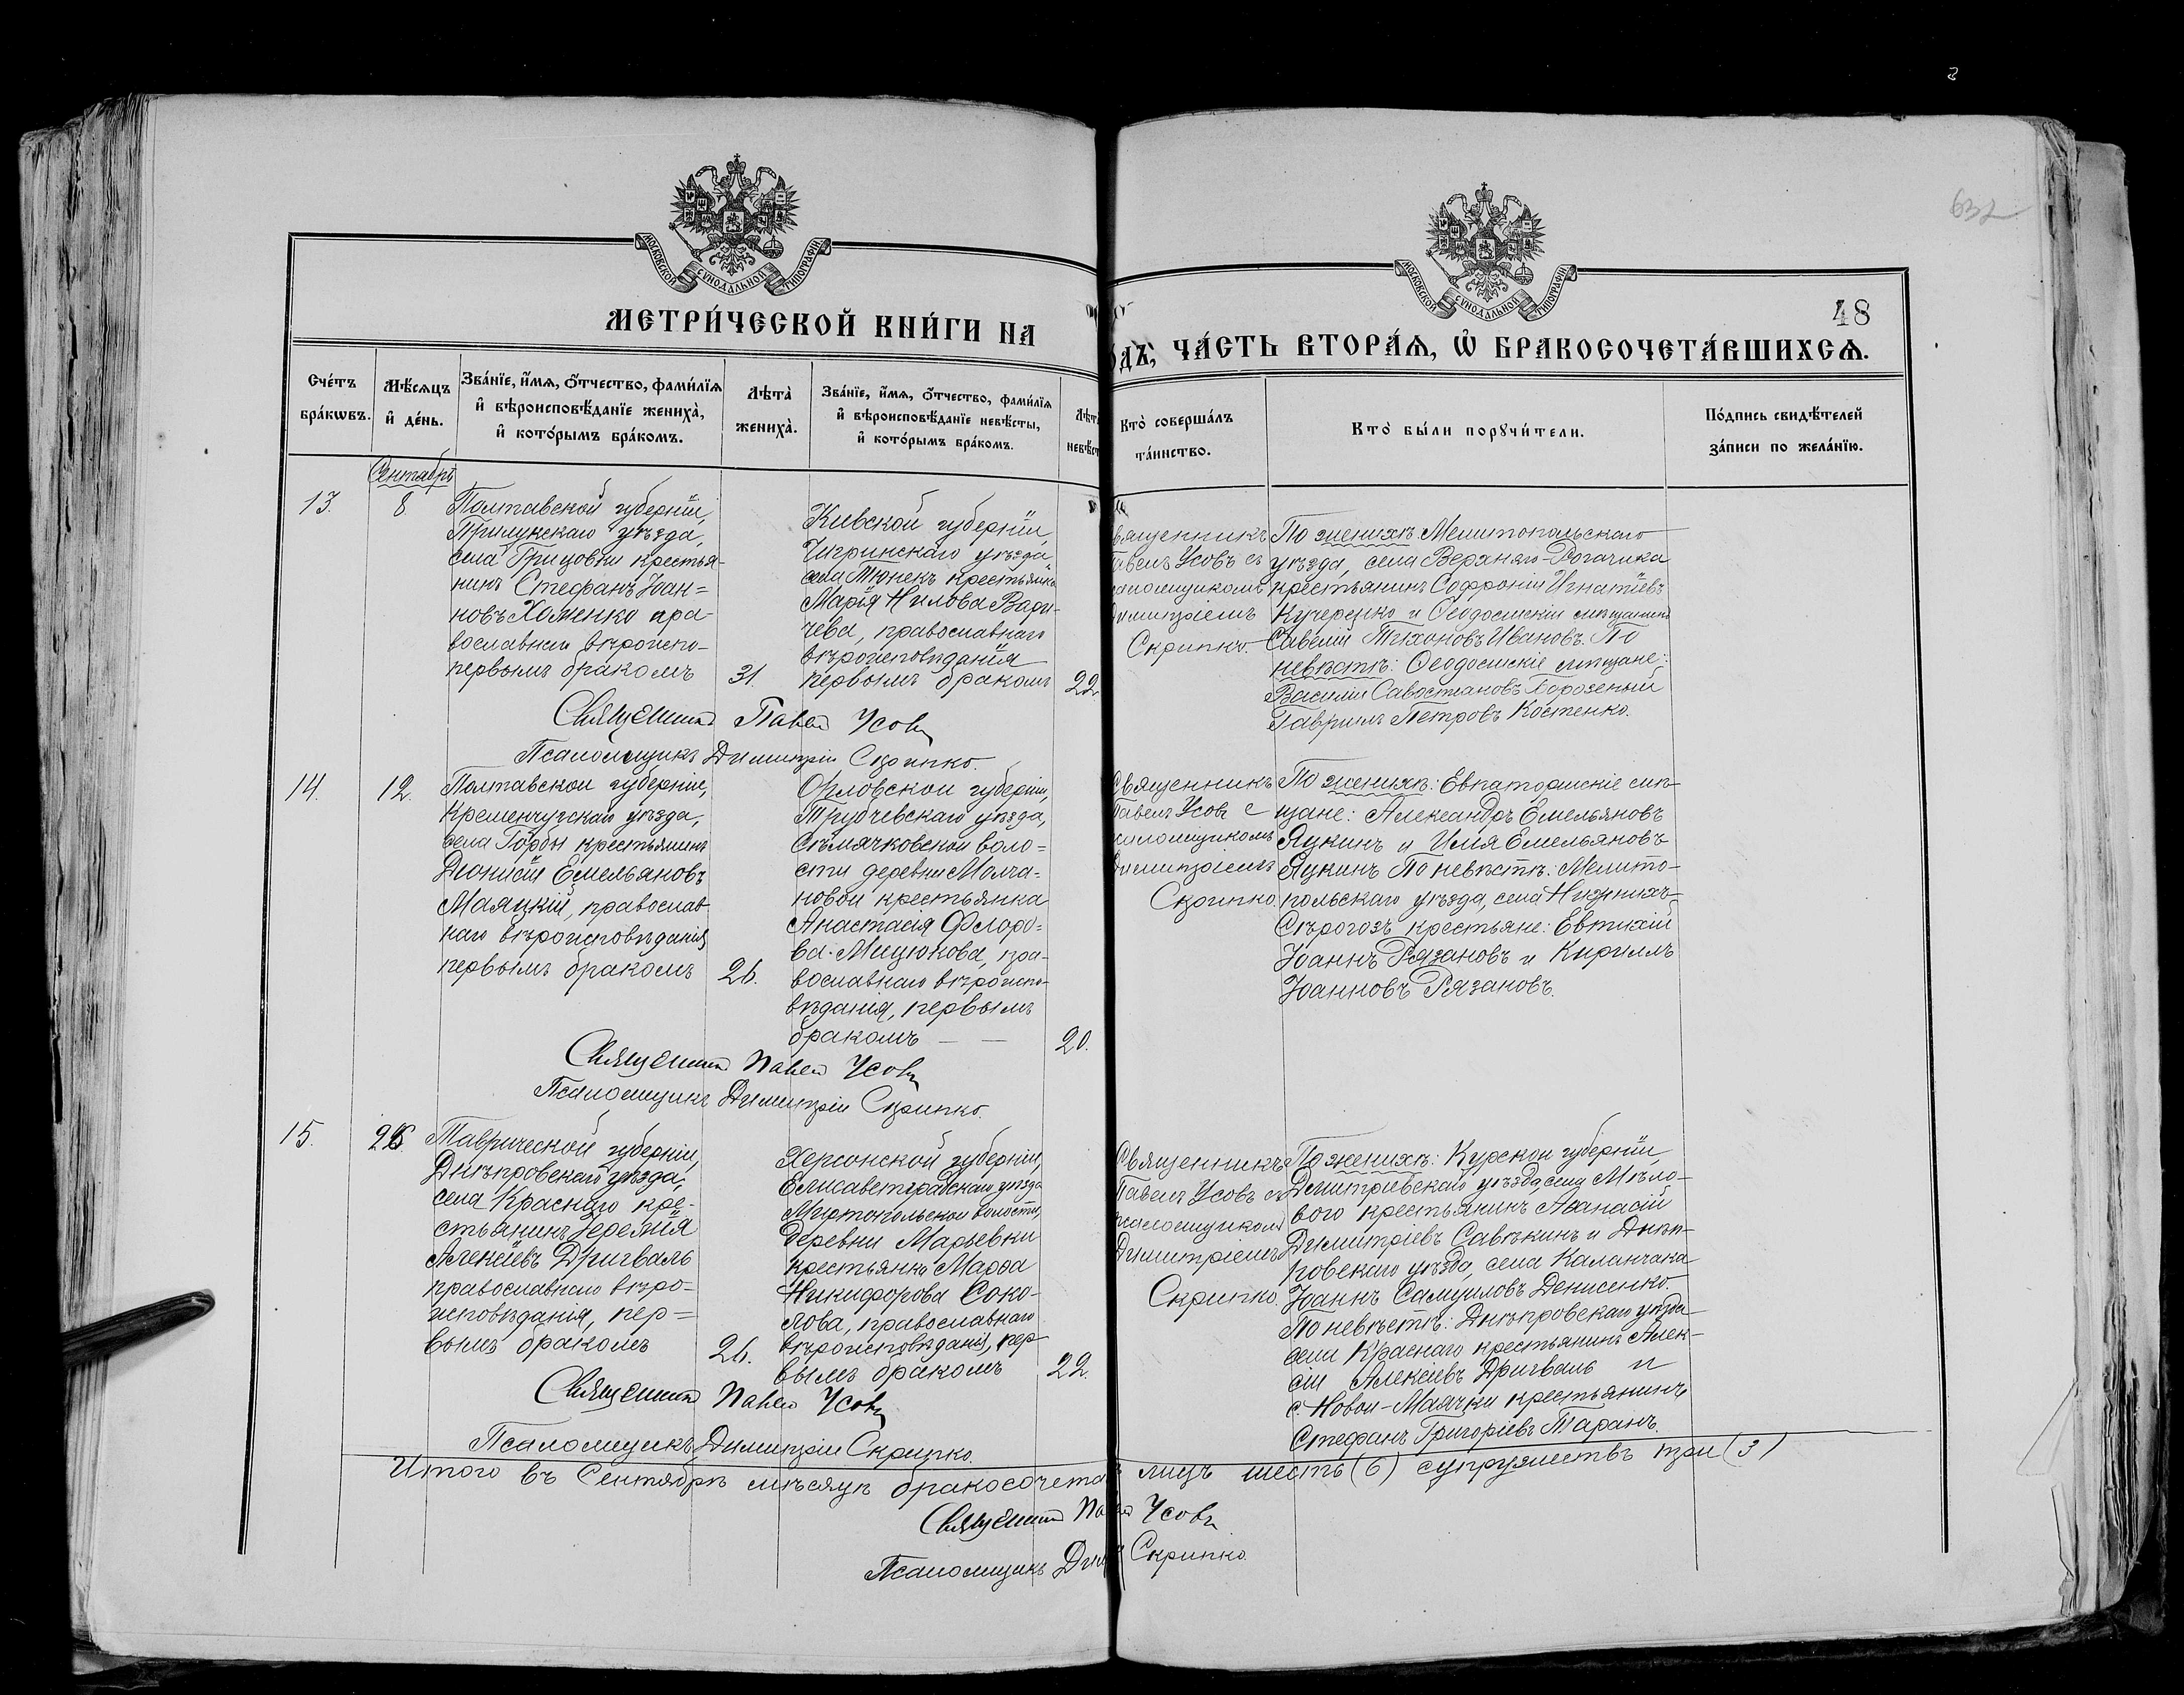 632
48
МОСКОВСКОЙ СѴНОДАЛЬНОЙ ТИПОГРАФІИ
МОСКОВСКОЙ СѴНОДАЛЬНОЙ ТИПОГРАФІИ
МЕТРИ́ЧЕСКОЙ КНИ́ГИ НА
ОДЪ, ЧА́СТЬ ВТОРА́Ѧ, Ѽ БРАКОСОЧЕТА́ВШИХСѦ.
Сче́тъ бра́кѡвъ.
Мѣ́сѧцъ и҆ де́нь.
Зва́нїе, и҆́мѧ, ѻ҆́тчество, фами́лїѧ
и҆ вѣроисповѣ́данїе жениха̀,
и҆ кото́рымъ бра́комъ.
Лѣта̀ жениха̀.
Зва́нїе, и҆́мѧ, ѻ҆́тчество, фами́лїѧ
и҆ вѣроисповѣ́данїе невѣ́сты,
и҆ кото́рымъ бра́комъ.
Кто̀ соверша́лъ
та́инство.
Кто̀ бы́ли порꙋчи́тели.
По́дпись свидѣ́телей
за́писи по жела́нїю.
Сентябрь
13.
8
Полтавской губерніи,
Прилукскаго уѣзда,
села Грицовки крестья-
нинъ Стефанъ Іоан=
новъ Хоменко пра-
вославнаго вѣроиспо-
первымъ бракомъ
31.
Кіевской губерніи,
Чигринскаго уѣзда
села Тюнекъ крестьянка
Марія Нилова Вари-
чева, православнаго
вѣроисповѣданія
первымъ бракомъ
22.
вященникъ
авелъ Усовъ съ
саломщикомъ
имитріемъ
Скрипко.
По женихѣ Мелитопольскаго
уѣзда, села Верхняго-Рогачика
крестьянинъ Софроній Игнатіевъ
Кучеренко и Ѳеодосійскій мѣщанинъ
Савелій Тихоновъ Ивановъ. По
невѣстѣ: Ѳеодосійскіе мѣщане:
Василій Савостіановъ
Гавріилъ Петровъ Костенко.
Священникъ Павелъ Усовъ
Псаломщикъ Димитрій Скрипко.
14.
12.
Полтавской губерніи,
Кременчугскаго уѣзда,
села Горбы крестьянинъ
Діонисій Емельяновъ
Маяцкій, православ
наго вѣроисповѣданія
первымъ бракомъ
26.
Орловской губерніи,
Трубчевскаго уѣзда,
Сѣмячковской воло=
сти деревни Молча=
новой крестьянка
Анастасія Флоро=
ва Мицюкова, пра-
вославнаго вѣроиспо-
вѣданія, первымъ
бракомъ — —
20.
Священникъ
Павелъ Усовъ с
саломщикомъ
Димитріемъ
Скрипко.
По женихѣ: Евпаторійскіе мѣ-
щане: Александръ Емельяновъ
Яцкинъ и Илія Емельяновъ
Яцкинъ По невѣстѣ: Мелито-
польскаго уѣзда, села Нижнихъ-
Сѣрогозъ крестьяне: Евтихій
Іоаннъ Рязановъ и Кириллъ
Іоанновъ Рязановъ.
Священникъ Павелъ Усовъ
Псаломщикъ Димитрій Скрипко.
15.
Таврической губерніи,
Днѣпровскаго уѣзда,
села Краснаго кре-
стьянинъ Іеремія
Алексіевъ Дригваль
православнаго вѣро-
исповѣданія, пер=
вымъ бракомъ
26.
Херсонской губерніи,
Елисаветградскаго уѣзда
деревни Марьевки
крестьянк Марѳа
Никифорова Соко-
лова, православнаго
вѣроисповѣданія, пер
вымъ бракомъ
22.
Священникъ
Павелъ Усовъ съ
псаломщикомъ
Димитріемъ
Скрипко.
По женихѣ: Курской губерніи,
Дмитріевскаго уѣзда, села Мѣло-
вого крестьянинъ Аѳанасій
Димитріевъ Савѣкинъ и Днѣп-
ровскаго уѣзда, села Каланчака
Іоаннъ Самуиловъ Денисенко.
По невѣстѣ: Днѣпровскаго уѣзда
села Краснаго крестьянинъ Алек-
сій Алексіевъ Дригваль и
с. Новой-Маячки крестьянинъ
Стефанъ Григоріевъ Таранъ.
Священникъ Павелъ Усовъ
Псаломщикъ Димитрій Скрипко.
Итого въ Сентябрѣ мѣсяцѣ бракосочета лицъ шесть (6) супружествъ три (3)
Священникъ Павелъ Усовъ
Псаломщикъ Дим Скрипко.